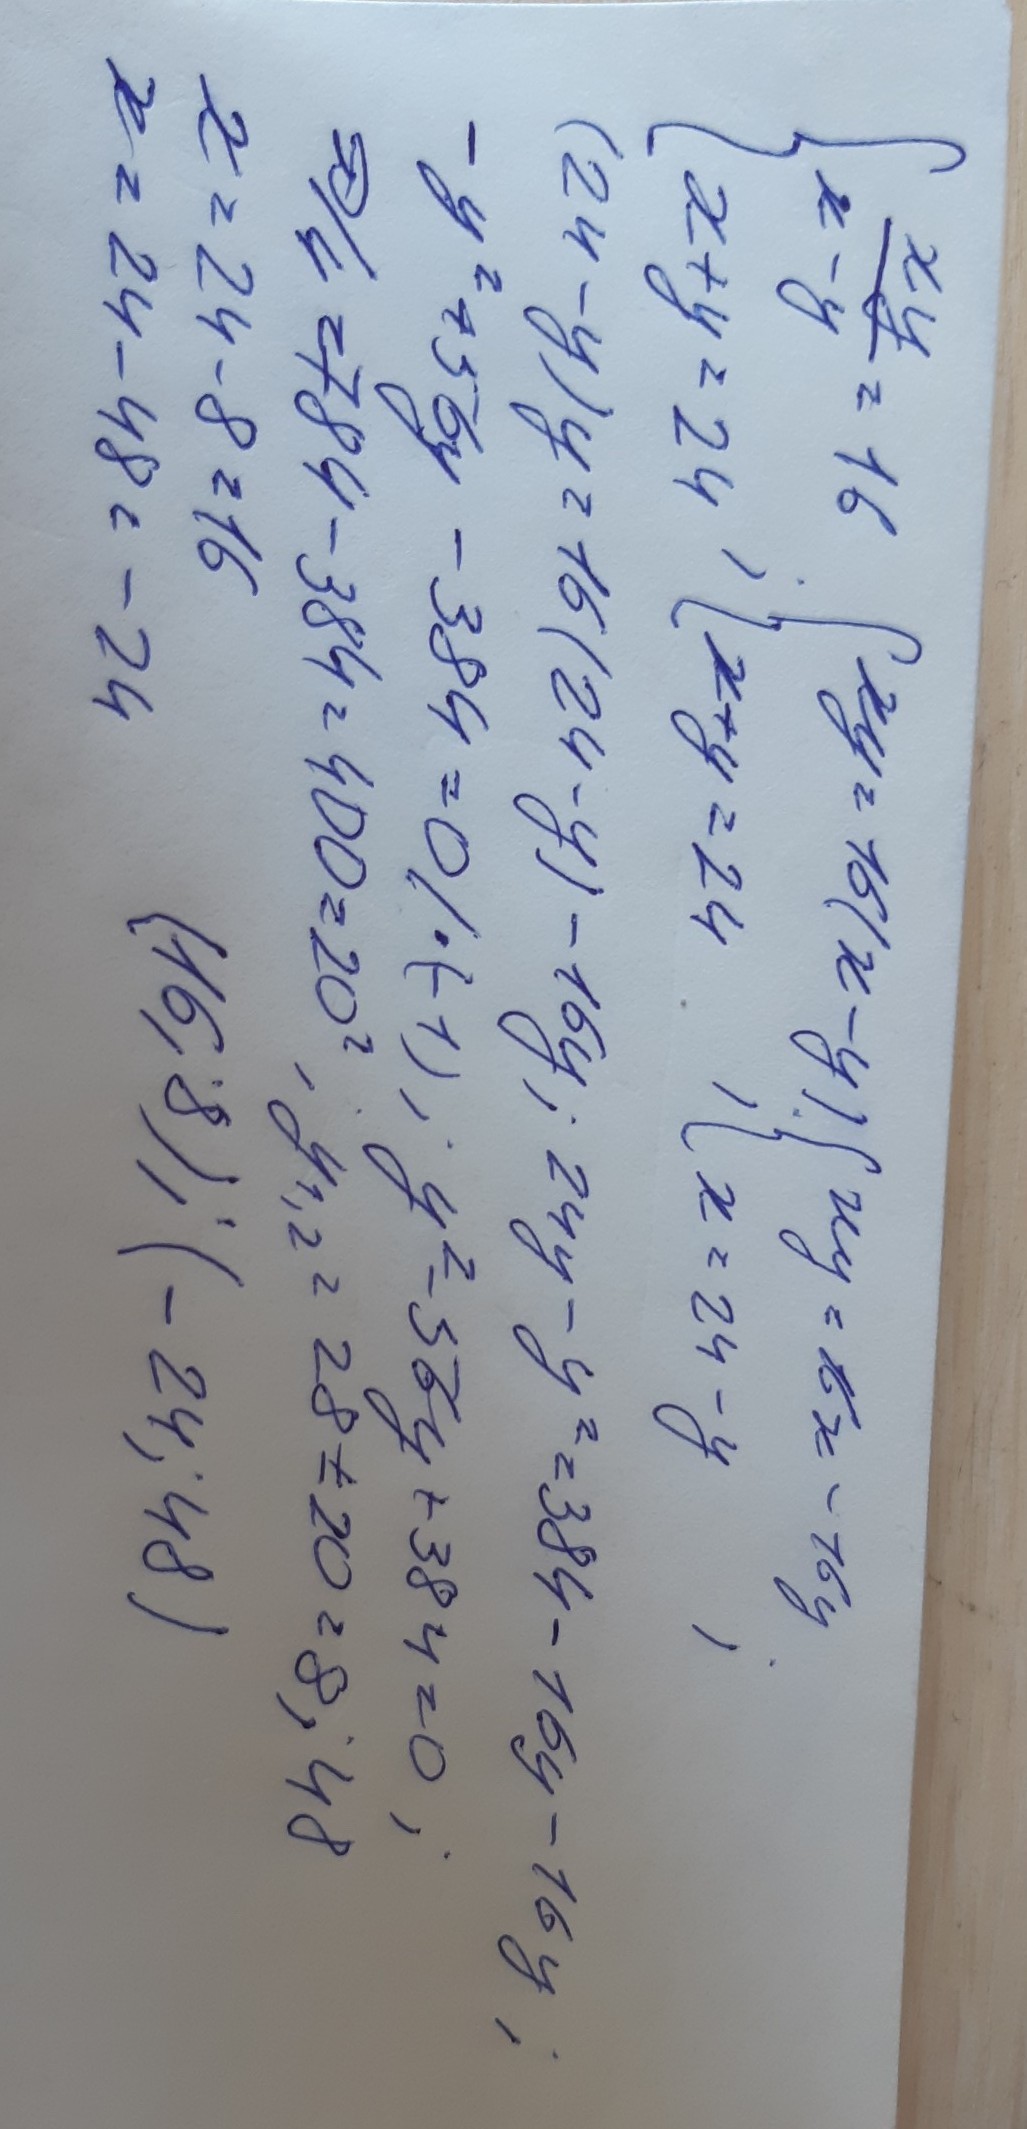 { xy/x-y = 16 ; { xy = 16(x-y) ; { xy = 16x - 16y ;
{ x+y = 24 { x+y = 24 { x = 24 - y
(24-y)y = 16(24-y) - 16y; 24y - y² = 384 - 16y - 16y ;
-y² + 56y - 384 = 0 /·(-1) ; y² - 56y + 384 = 0 ;
D/4 = 784 - 384 = 400 = 20² ; y1,2 = 28 ± 20 = 8; 48
x = 24 - 8 = 16
x = 24 - 48 = -24 (16; 8); (-24; 48)